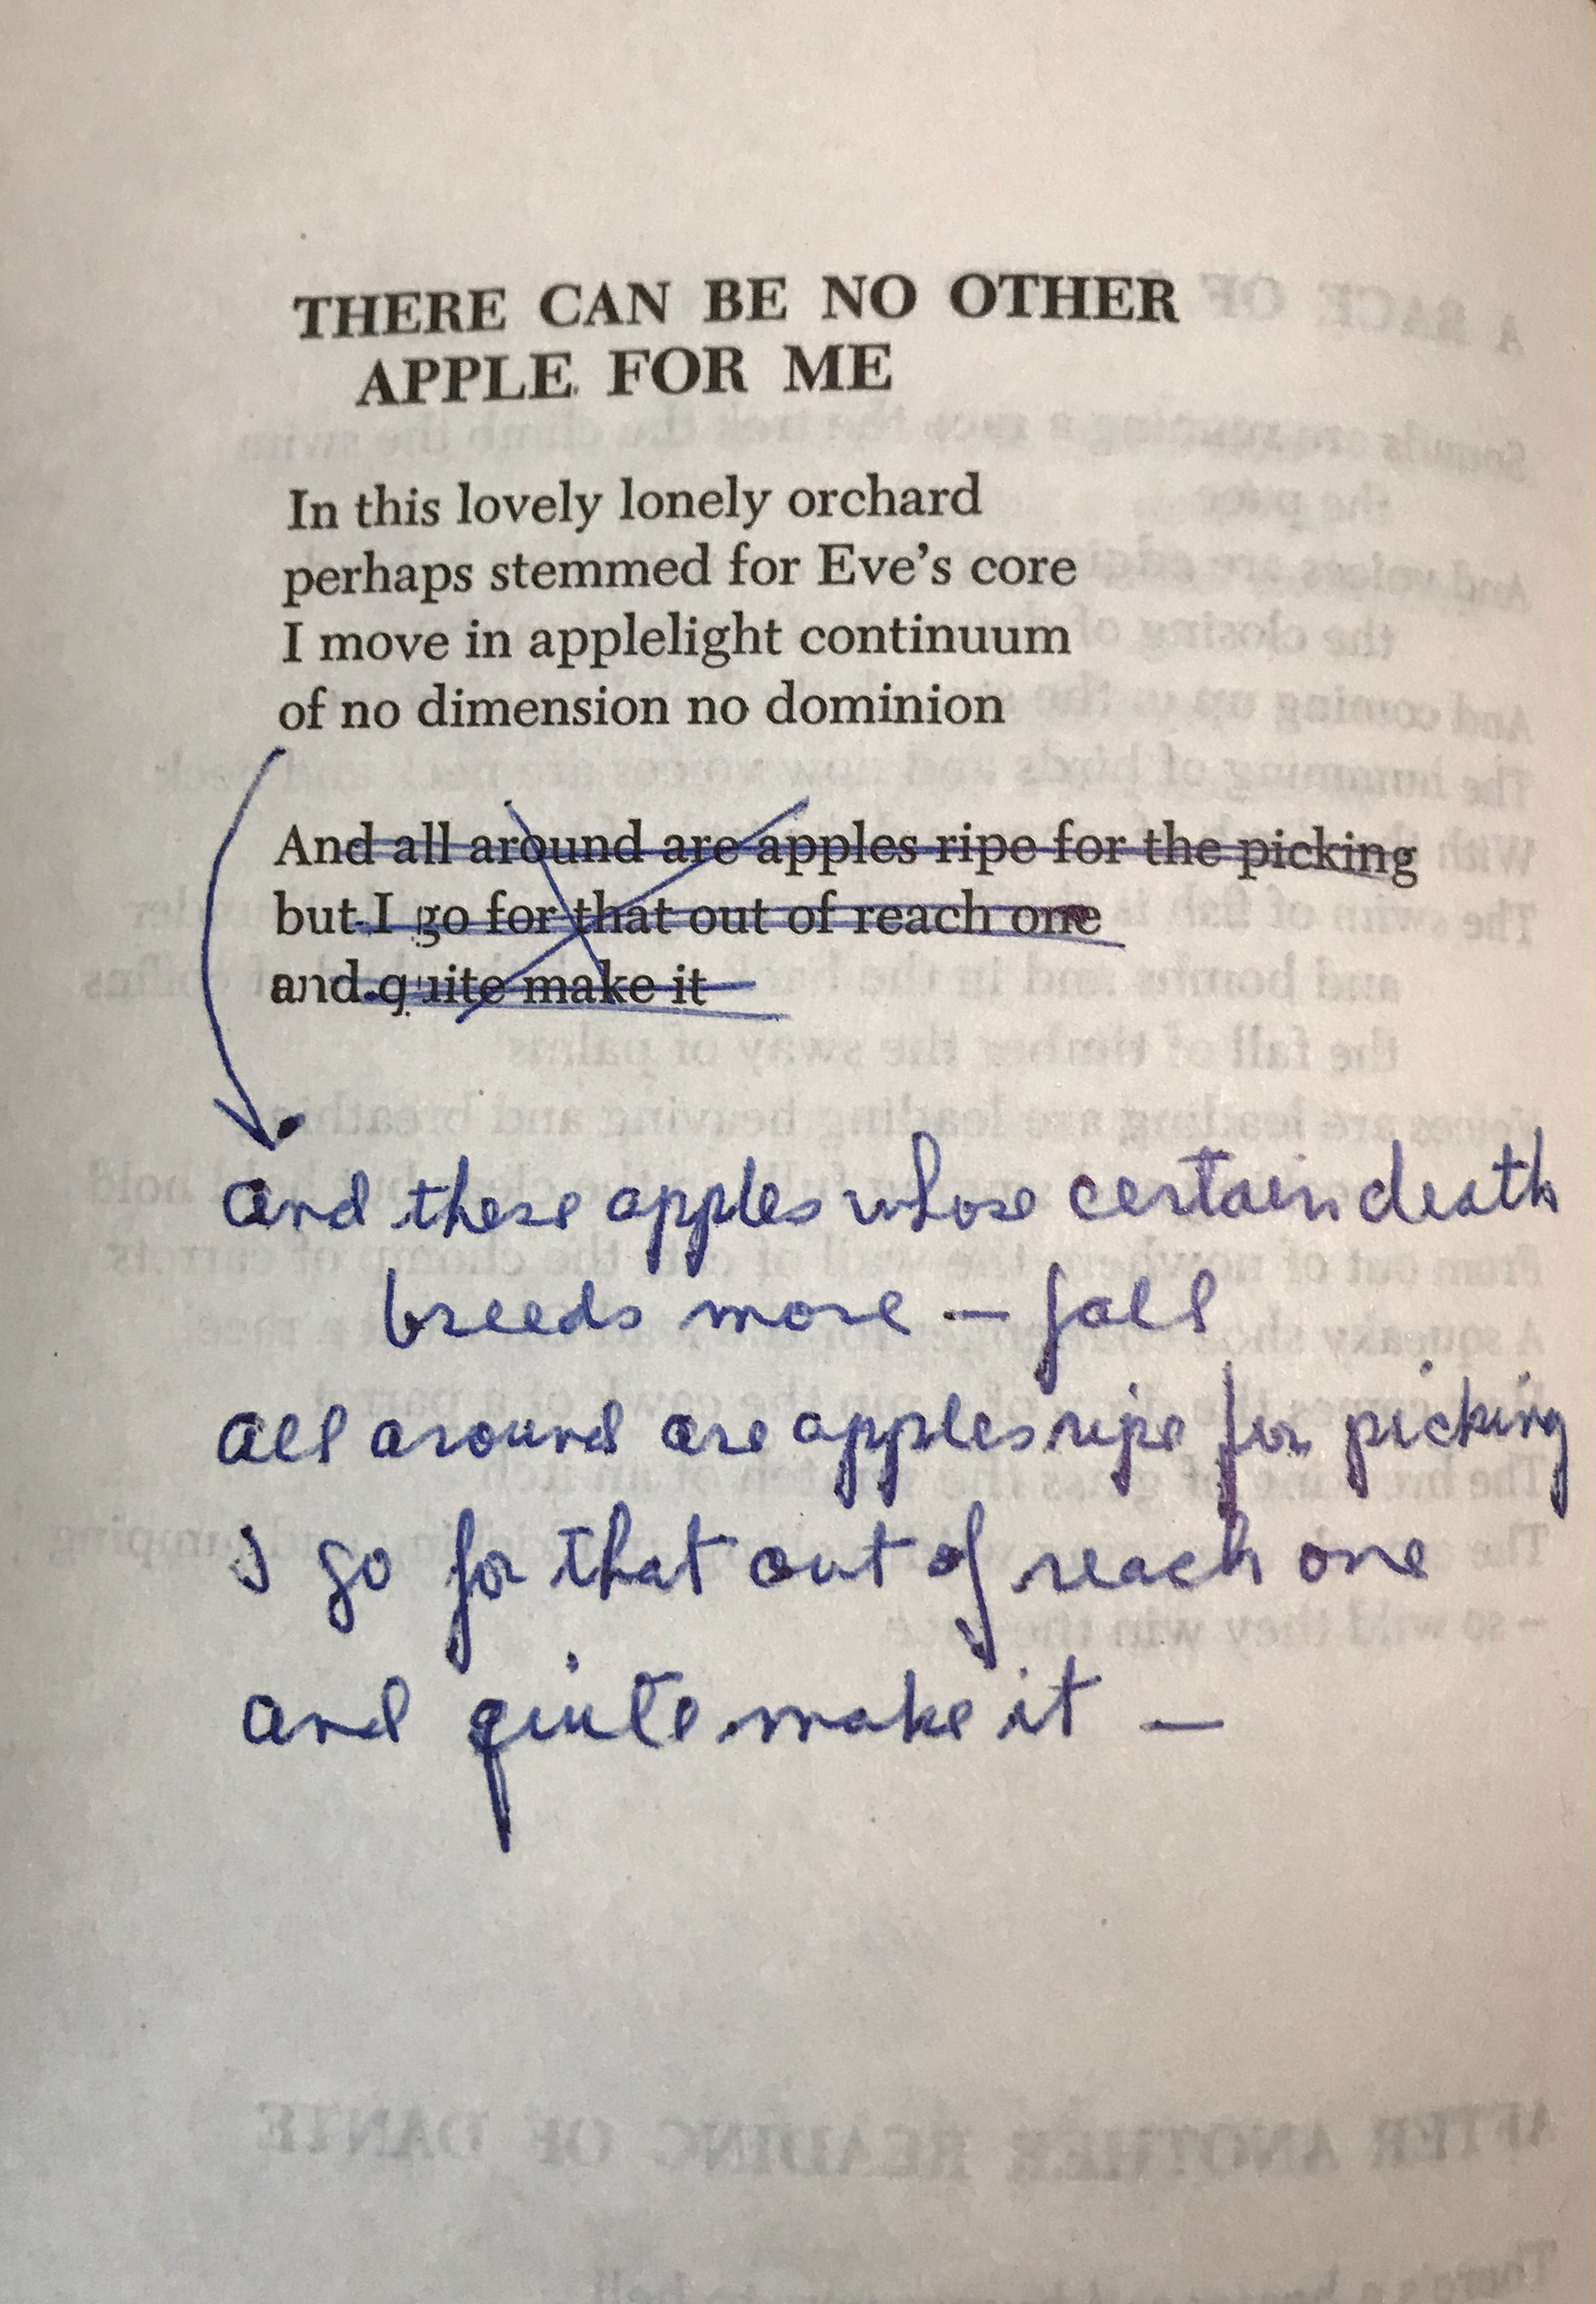 THERE CAN BE NO OTHER
APPLE FOR ME
In this lovely lonely orchard
perhaps stemmed for Eve's core
I move in applelight continuum
of no dimension no dominion
And all around are apples ripe for the picking
but I go for that out of reach one
and quite make it
and these apples whose certain death
breeds more — fall
all around are apples ripe for picking
I go for that out of reach one
and quite make it —
AFTER ANOTHER READING OF DANTE